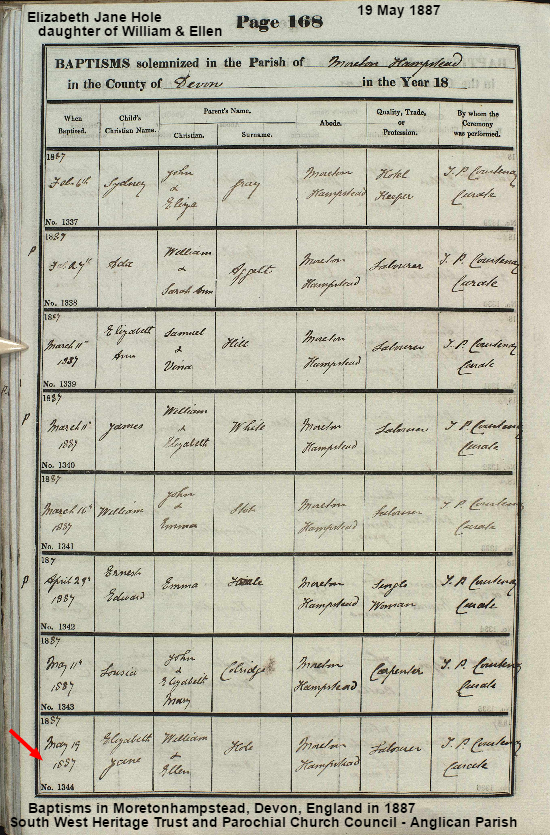 Elizabeth Jane Hole
daughter of William & Ellen
Page 168
19 May 1887
BAPTISMS solemnized in the Parish of Moreton Hampstead
in the County of Devon in the Year 18
When Baptized.
Child's Christian Name.
Parent's Name.
Christian.
Surname.
Abode.
Quality, Trade, or Profession.
By whom the Ceremony was performed.
1887
Feb. 6th
No. 1337
Sydney
John & Eliza
Gray
Moreton Hampstead
Hotel Keeper
T. P. Courtenay Curate
1887
Feb. 27th
No. 1338
Ada
William & Sarah Ann
Aggett
Moreton Hampstead
Labourer
T. P. Courtenay Curate
1887
March 11th 1887
No. 1339
Elizabeth Ann
Samuel &
Hill
Moreton Hampstead
Labourer
T. P. Courtenay Curate
P
1887
March 11th 1887
No. 1340
James
William & Elizabeth
White
Moreton Hampstead
Labourer
T. P. Courtenay Curate
1887
March 16th 1887
No. 1341
William
John & Emma
Moreton Hampstead
Labourer
T. P. Courtenay Curate
P
187
April 29th 1887
No. 1342
Ernest Edward
Emma
Moreton Hampstead
Single Woman
T. P. Courtenay Curate
1887
May 11th 1887
No. 1343
Louisa
John & Elizabeth Mary
Colridge
Moreton Hampstead
Carpenter
T. P. Courtenay Curate
1887
May 19 1887
No. 1344
Elizabeth Jane
William & Ellen
Hole
Moreton Hampstead
Labourer
T. P. Courtenay Curate
Baptisms in Moretonhampstead, Devon, England in 1887
South West Heritage Trust and Parochial Church Council - Anglican Parish